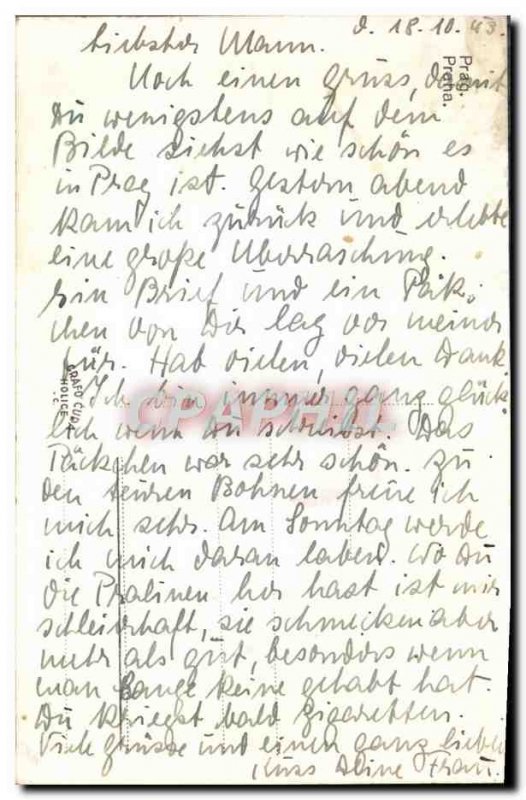 d. 18.10.43.
Liebster Mann.
Noch einen Gruss, damit
Du wenigstens auf dem
Bilde siehst wie schön es
in Prag ist. Gestern abend
kam ich zurück und erlebte
eine große Überraschung.
Ein Brief und ein Päk-
chen von Dir lag vor meiner
Tür. Hab vielen, vielen Dank
Ich bin immer ganz glück
lich wenn Du schreibst. Das
Päckchen war sehr schön. Zu
den teuren Bohnen freue ich
mich sehr. Am Sonntag werde
ich mich daran laben. Wo Du
die Pralinen her hast ist mir
schleierhaft, sie schmecken aber
mehr als gut, besonders wenn
man lange keine gehabt hat.
Du kriegst bald Zigaretten.
Viele Grüsse und einen ganz lieben
Kuss Deine Frau.
Prag.
Praha.
GRAFO ČUDA
HOLICE
CPAPHIL